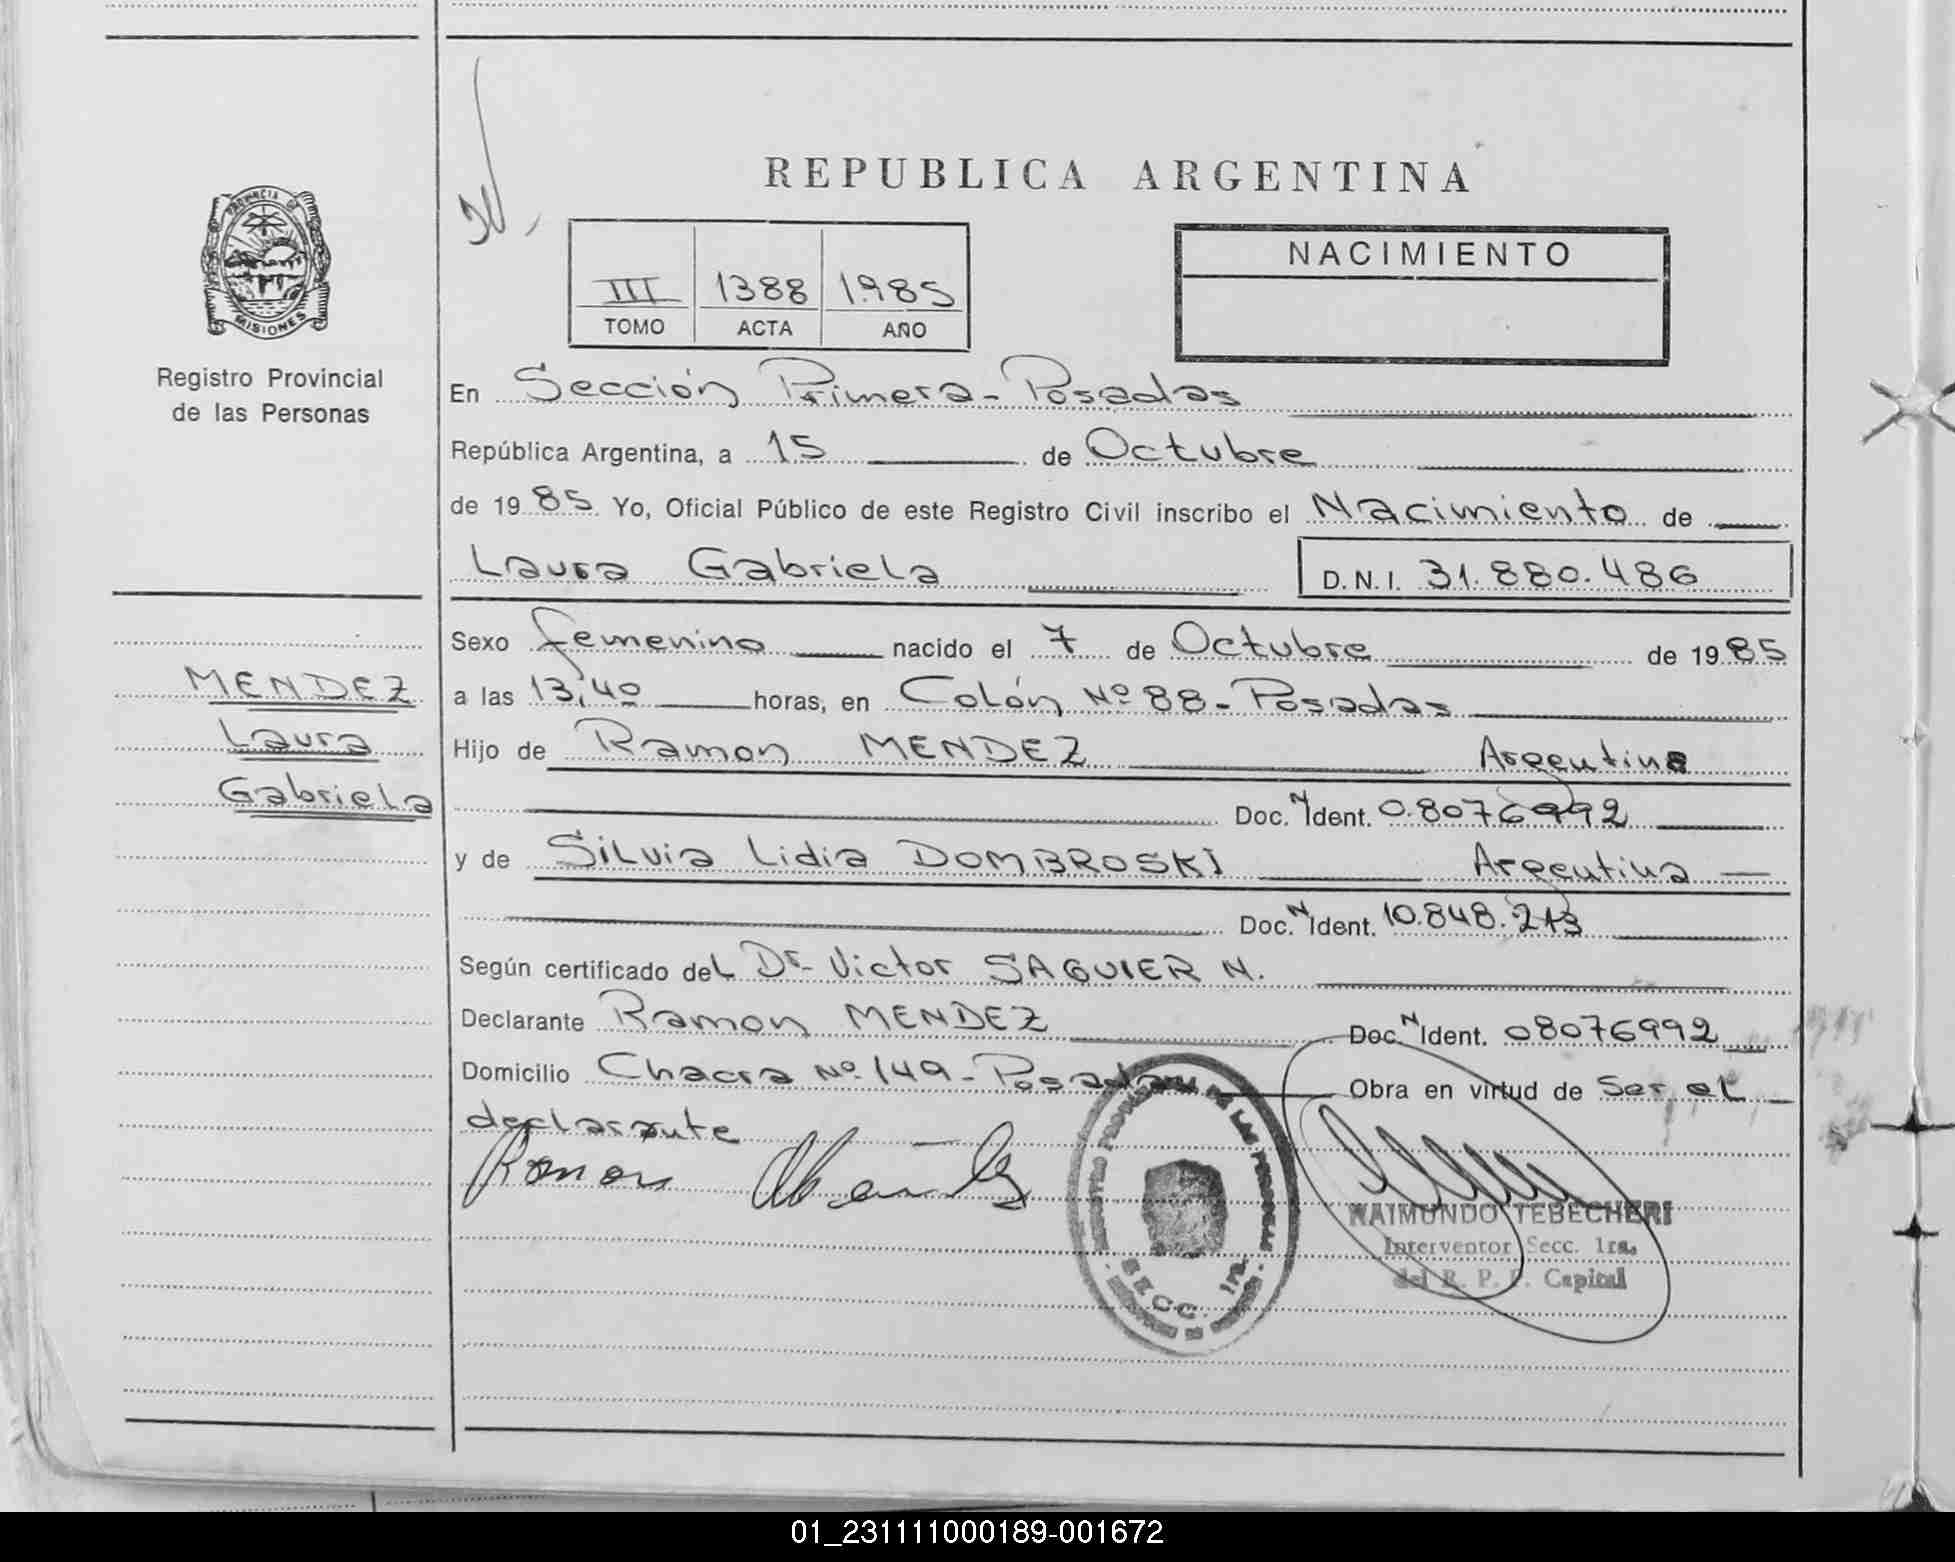 REPUBLICA ARGENTINA
PROVINCIA DE
MISIONES
Registro Provincial
de las Personas
III 1388 1.985
TOMO ACTA AÑO
NACIMIENTO
En Sección Primera - Posadas
República Argentina, a 15 de Octubre
de 19 85 Yo, Oficial Público de este Registro Civil inscribo el Nacimiento de
Laura Gabriela D.N.I. 31.880.486
Sexo femenino nacido el 7 de Octubre de 19 85
MENDEZ
Laura
Gabriela
a las 13,40 horas, en Colón Nº 88 - Posadas
Hijo de Ramon MENDEZ Argentina
Doc. N Ident. 0.8076992
y de Silvia Lidia DOMBROSKI Argentina
Doc. N Ident. 10.848.213
Según certificado del Dr. Victor SAGUIER N.
Declarante Ramon MENDEZ Doc. N Ident. 08076992
Domicilio Chacra Nº 149 - Posadas Obra en virtud de Ser el
declarante
Ramon
DE LAS PERSONAS
SECC. 1ra.
RAIMUNDO TEBECHERI
Interventor Secc. 1ra.
del R. P. P. Capital
01_231111000189-001672